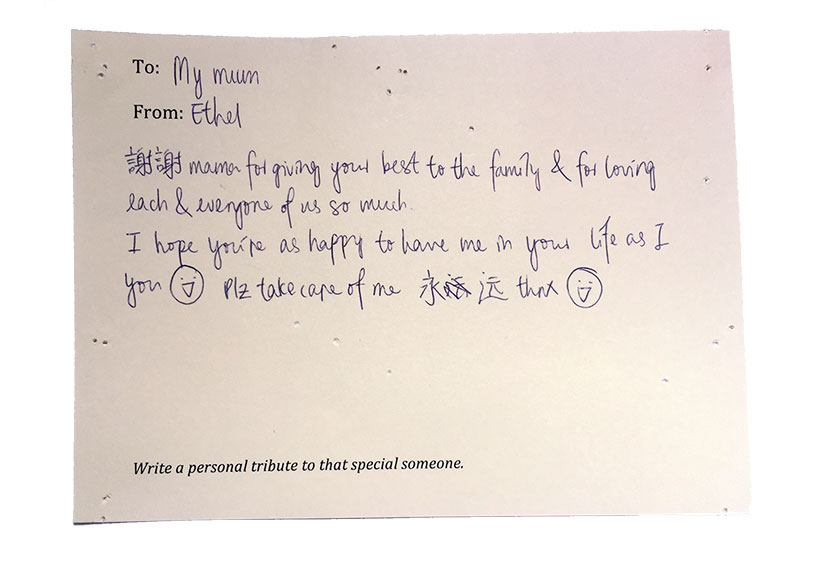 To: My mum
From: Ethel
謝謝 mama for giving your best to the family & for loving
each & everyone of us so much.
I hope you're as happy to have me in your life as I
you Plz take care of me 永远 thnx
Write a personal tribute to that special someone.